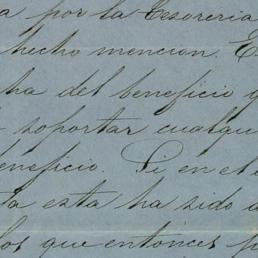 por la Tesoreria
hecho mencion. E
ha del beneficio q
soportar cualqu
beneficio. Si en el
ta esta ha sido a
los que entonces p